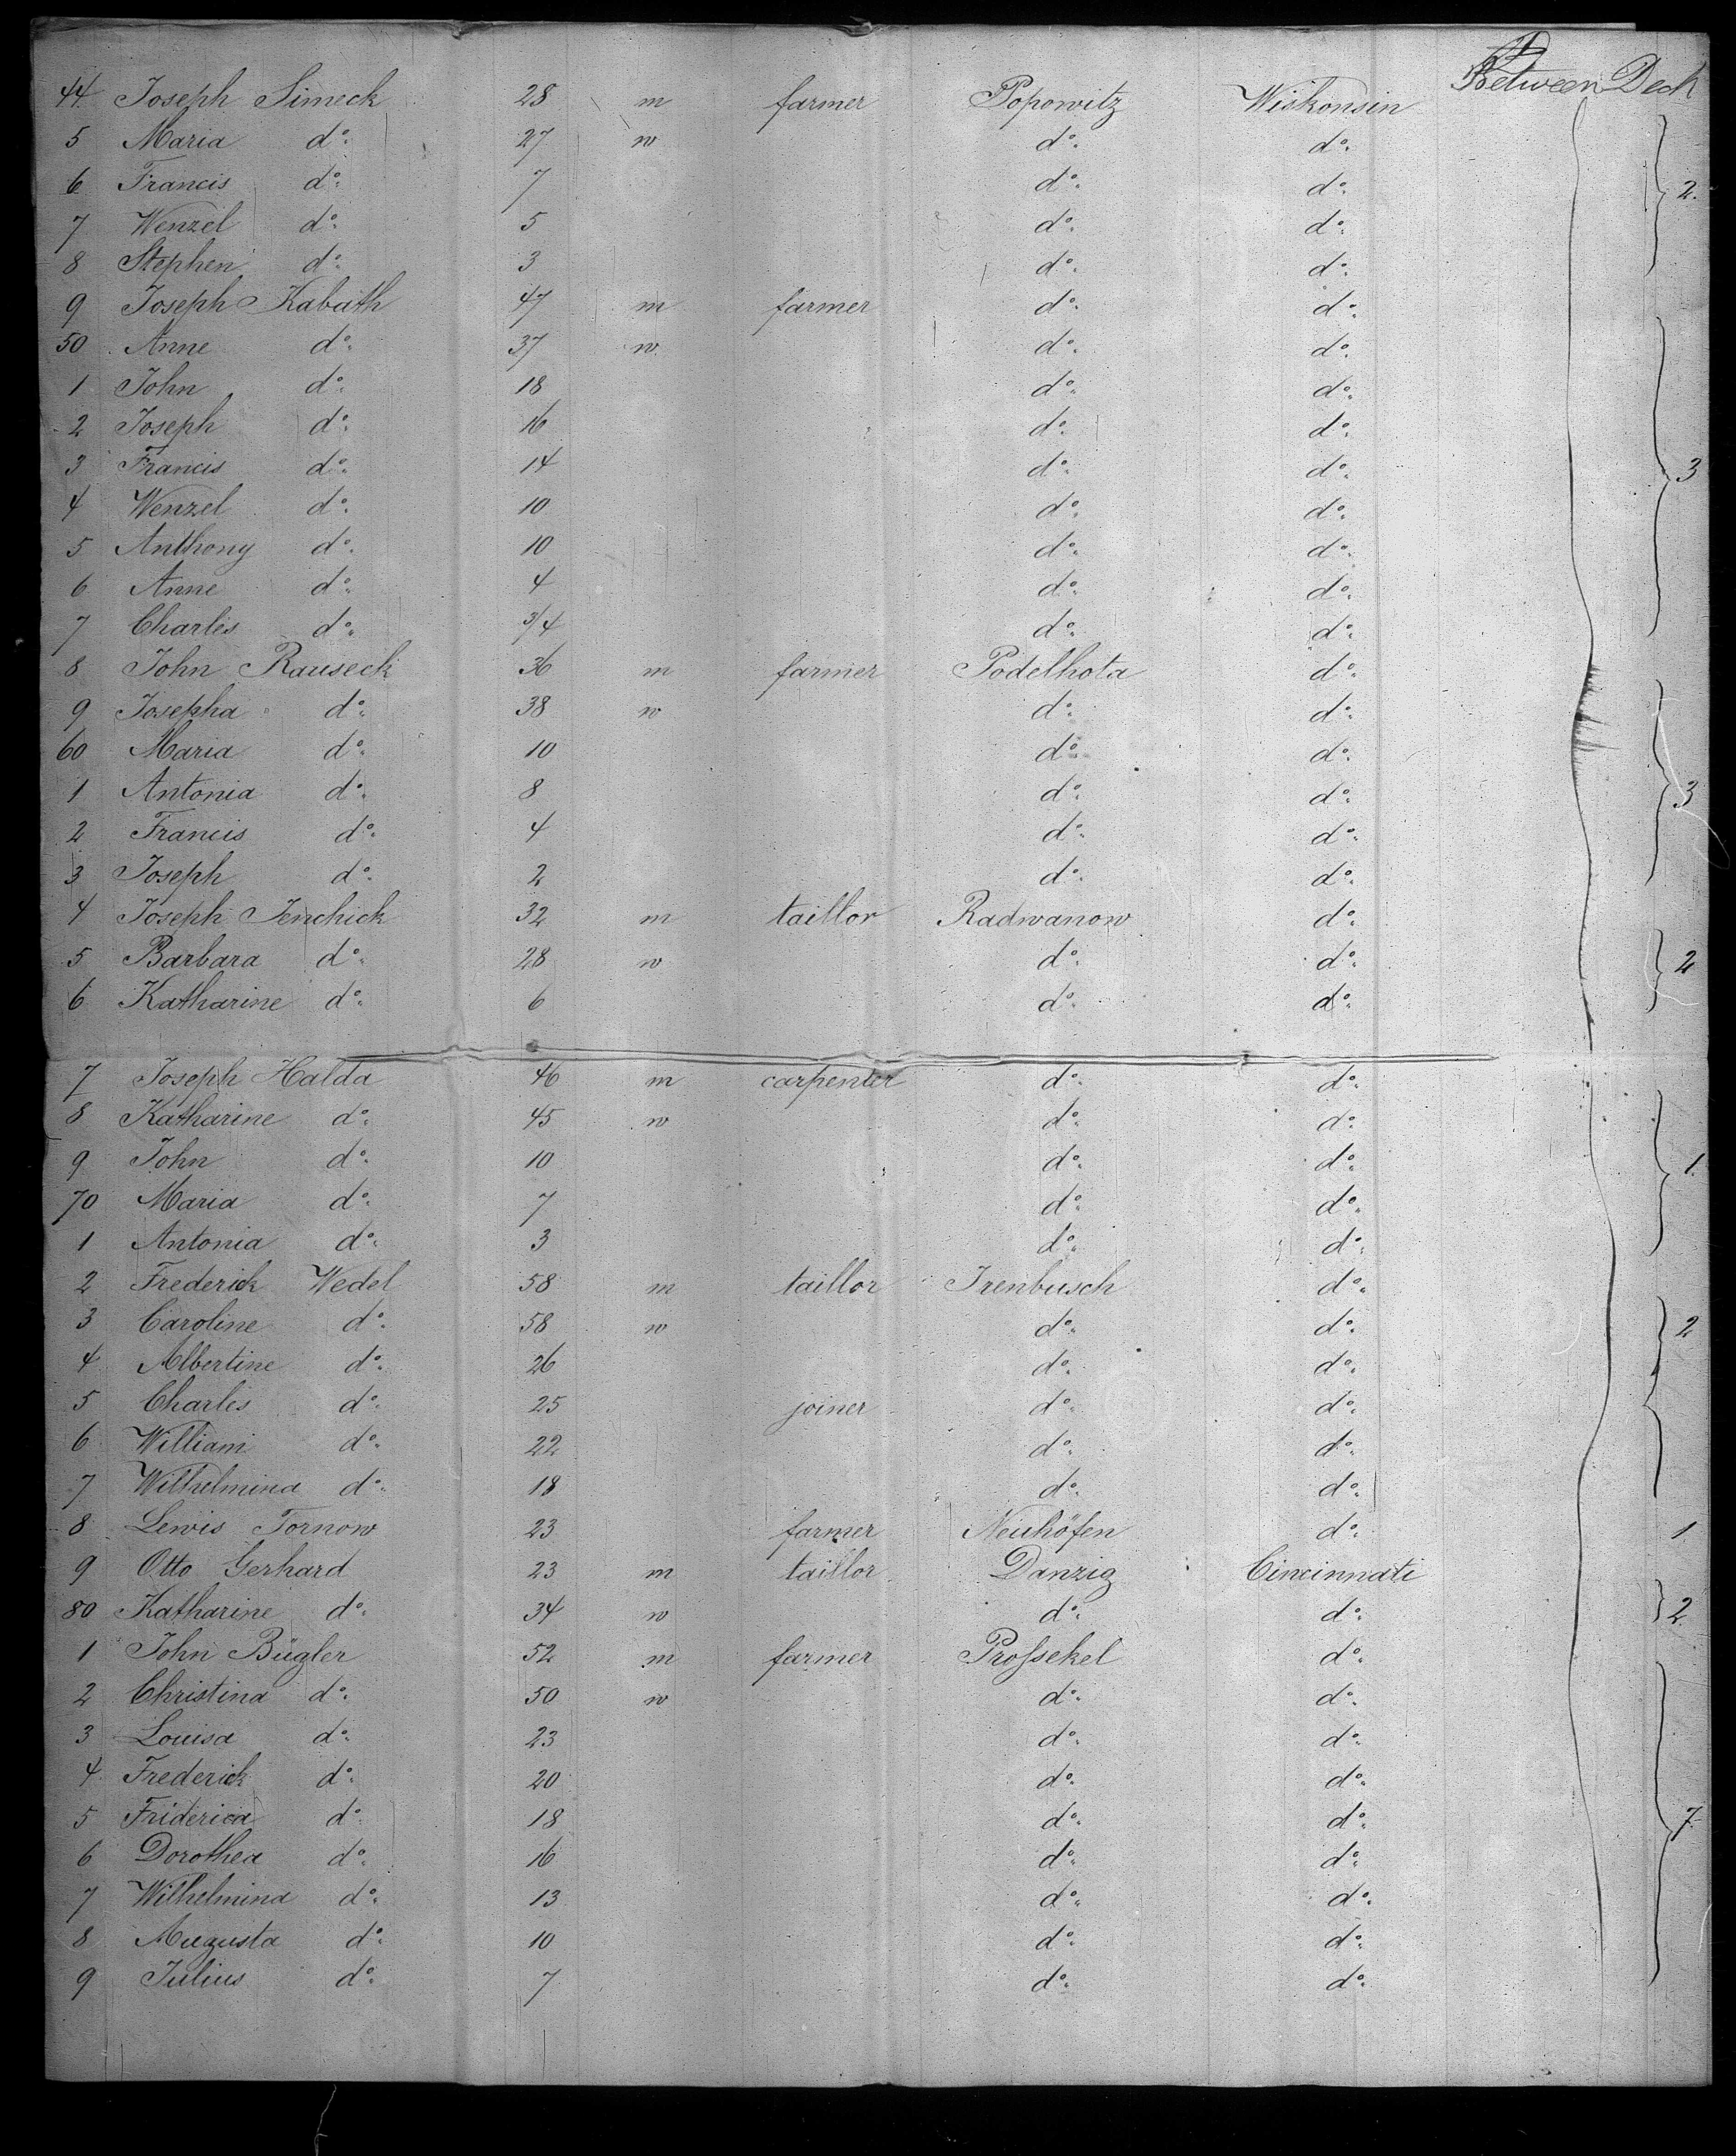 Between Deck
44. Joseph Simeck 28 m farmer Popowitz Wiskonsin
5 Maria do. 27 w do. do.
6 Francis do. 7 do. do. 2.
7 Wenzel do. 5 do. do.
8 Stephen do. 3 do. do.
9 Joseph Kabath 47 m farmer do. do.
50 Anne do. 37 w. do. do.
1 John do. 18 do. do.
2 Joseph do. 16 do. do.
3 Francis do. 14 do. do. 3
4 Wenzel do. 10 do. do.
5 Anthony do. 10 do. do.
6 Anne do. 4 do. do.
7 Charles do. 3/4 do. do.
8 John Rauseck 36 m farmer Podelhota do.
9 Josepha do. 38 w do. do.
60 Maria do. 10 do. do.
1 Antonia do. 8 do. do. 3
2 Francis do. 4 do. do.
3 Joseph do. 2 do. do.
4 Joseph Jenchick 32 m taillor Radwanow do.
5 Barbara do. 28 w do. do. 2
6 Katharine do. 6 do. do.
7 Joseph Halda 46 m carpenter do. do.
8 Katharine do. 45 w do. do.
9 John do. 10 do. do. 1.
70 Maria do. 7 do. do.
1 Antonia do. 3 do. do.
2 Frederick Wedel 58 m taillor Irenbusch do.
3 Caroline do. 58 w do. do. 2
4 Albertine do. 26 do. do.
5 Charles do. 25 joiner do. do.
6 William do. 22 do. do.
7 Wilhelmina do. 18 do. do.
8 Lewis Tornow 23 farmer Neuhöfen do. 1
9 Otto Gerhard 23 m taillor Danzig Cincinnati
80 Katharine do. 34 w do. do. 2
1 John Bügler 52 m farmer Proſsekel do.
2 Christina do. 50 w do. do.
3 Louisa do. 23 do. do.
4 Frederick do. 20 do. do.
5 Friderica do. 18 do. do. 7.
6 Dorothea do. 16 do. do.
7 Wilhelmina do. 13 do. do.
8 Augusta do. 10 do. do.
9 Julius do. 7 do. do.